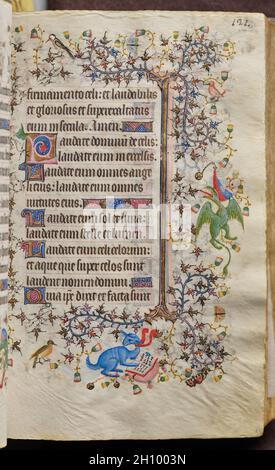 firmamento celi: et laudabilis
et gloriosus et superexaltatus
eum in secula. Amen.
Laudate dominū de celis:
laudate eum in excelsis.
Laudate eum omnes ange
li eius: laudate eum omnes
uirtutes eius.
Laudate eum sol et luna:
laudate eum
Laudate eum celi celorum:
et aque que super celos sunt
laudent nomen domini.
Quia ip̄e dixit et facta sunt
alamy
Image ID: 2H1003N
www.alamy.com